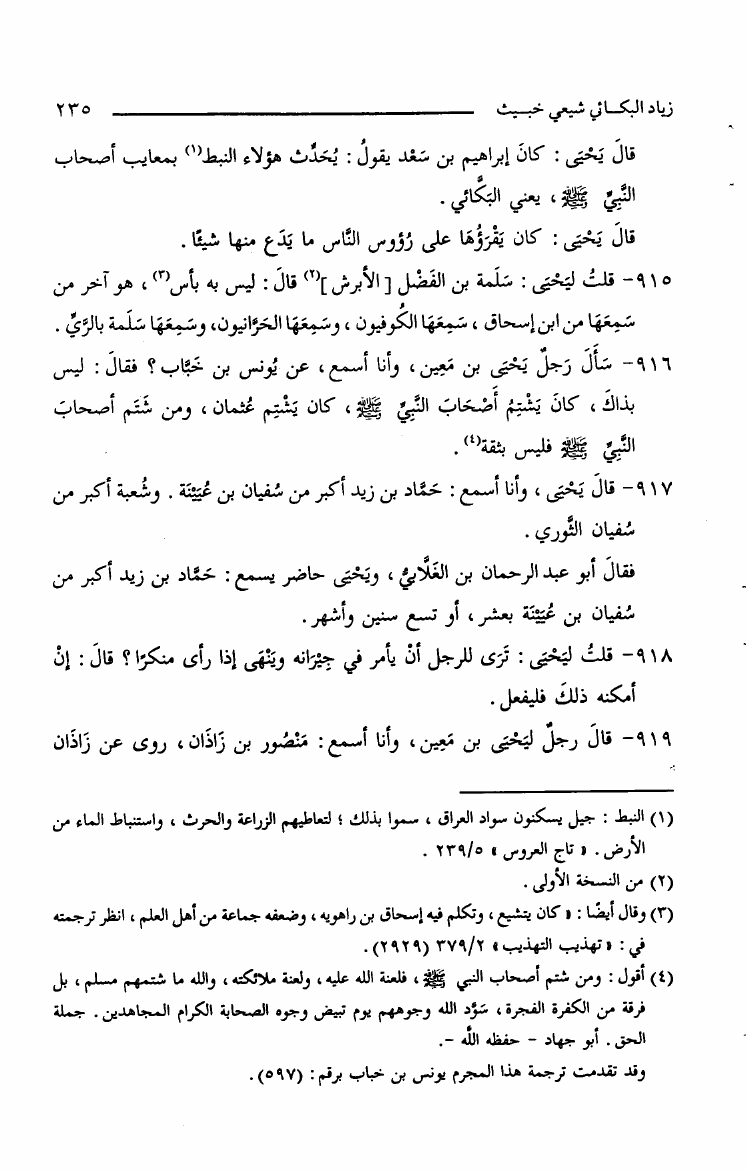 زياد البكـائي شيعي خبـيث ٢٣٥
قالَ يَحْيَى : كانَ إبراهيم بن سَعْد يقولُ : يُحَدِّث هؤلاء النبط(١) بمعايب أصحاب
النَّبِيِّ ﷺ ، يعني البَكَّائي .
قالَ يَحْيَى : كان يَقْرَؤُهَا على رُؤوس النَّاس ما يَدَع منها شيئًا .
٩١٥- قلتُ ليَحْيَى : سَلَمة بن الفَضْل [ الأبرش ](٢) قالَ : ليس به بأس(٣) ، هو آخر من
سَمِعَهَا من ابن إسحاق ، سَمِعَهَا الكُوفيون ، وسَمِعَهَا الحَرَّانيون، وسَمِعَهَا سَلَمة بالرَّيِّ .
٩١٦- سَأَلَ رَجلٌ يَحْيَى بن مَعِين، وأنا أسمع، عن يُونس بن خَبَّاب ؟ فقالَ : ليس
بذاكَ ، كانَ يَشْتِمُ أَصْحَابَ النَّبِيِّ ﷺ ، كان يَشْتِم عُثمان، ومن شَتَم أصحابَ
النَّبِيِّ ﷺ فليس بثقة(٤) .
٩١٧- قالَ يَحْيَى ، وأنا أسمع : حَمَّاد بن زيد أكبر من سُفيان بن عُيَيْنَة . وشُعبة أكبر من
سُفيان الثَّوري .
فقالَ أبو عبد الرحمان بن الغَلَّابيُّ ، ويَحْيَى حاضر يسمع : حَمَّاد بن زيد أكبر من
سُفيان بن عُيَيْنَة بعشر، أو تسع سنين وأشهر .
٩١٨- قلتُ ليَحْيَى : تَرَى للرجل أنْ يأمر في جِيْرَانه ويَنْهَى إذا رأى منكرًا ؟ قالَ : إنْ
أمكنه ذلكَ فليفعل .
٩١٩- قالَ رجلٌ ليَحْيَى بن مَعِين، وأنا أسمع : مَنْصُور بن زَاذَان، روى عن زَاذَان
(١) النبط : جيل يسكنون سواد العراق ، سموا بذلك ؛ لتعاطيهم الزراعة والحرث ، واستنباط الماء من
الأرض . « تاج العروس » ٢٣٩/٥ .
(٢) من النسخة الأولى .
(٣) وقال أيضًا : « كان يتشيع ، وتكلم فيه إسحاق بن راهويه ، وضعفه جماعة من أهل العلم ، انظر ترجمته
في : « تهذيب التهذيب » ٣٧٩/٢ (٢٩٢٩) .
(٤) أقول : ومن شتم أصحاب النبي ﷺ ، فلعنة الله عليه ، ولعنة ملائكته ، والله ما شتمهم مسلم ، بل
فرقة من الكفرة الفجرة ، سَوَّد الله وجوههم يوم تبيض وجوه الصحابة الكرام المجاهدين . جملة
الحق . أبو جهاد - حفظه اللَّه -.
وقد تقدمت ترجمة هذا المجرم يونس بن خباب برقم : (٥٩٧) .